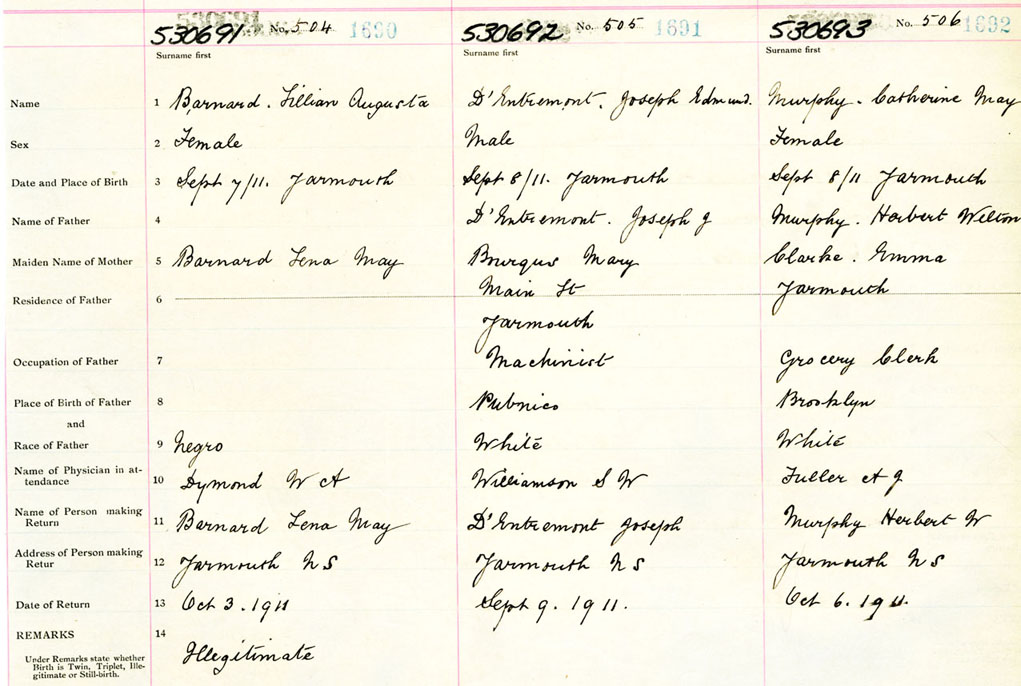 530691 No. 504 1690 530692 No. 505 1691 530693 No. 506 1692
Surname first Surname first Surname first
Name 1 Barnard. Lillian Augusta D'Entremont. Joseph Edmund. Murphy. Catherine May
Sex 2 Female Male Female
Date and Place of Birth 3 Sept 7/11. Yarmouth Sept 8/11. Yarmouth Sept 8/11 Yarmouth
Name of Father 4 D'Entremont. Joseph J Murphy. Herbert Welton
Maiden Name of Mother 5 Barnard Lena May Bourque Mary Clarke. Emma
Residence of Father 6 Main St Yarmouth
Yarmouth
Occupation of Father 7 Machinist Grocery Clerk
Place of Birth of Father 8 Pubnico Brooklyn
and
Race of Father 9 Negro White White
Name of Physician in at-
tendance 10 Dymond W A Williamson S W Fuller A J
Name of Person making
Return 11 Barnard Lena May D'Entremont Joseph Murphy Herbert W
Address of Person making
Retur 12 Yarmouth N S Yarmouth N S Yarmouth N S
Date of Return 13 Oct 3. 1911 Sept 9. 1911. Oct 6. 1911.
REMARKS 14 Illegitimate
Under Remarks state whether
Birth is Twin, Triplet, Ille-
gitimate or Still-birth.